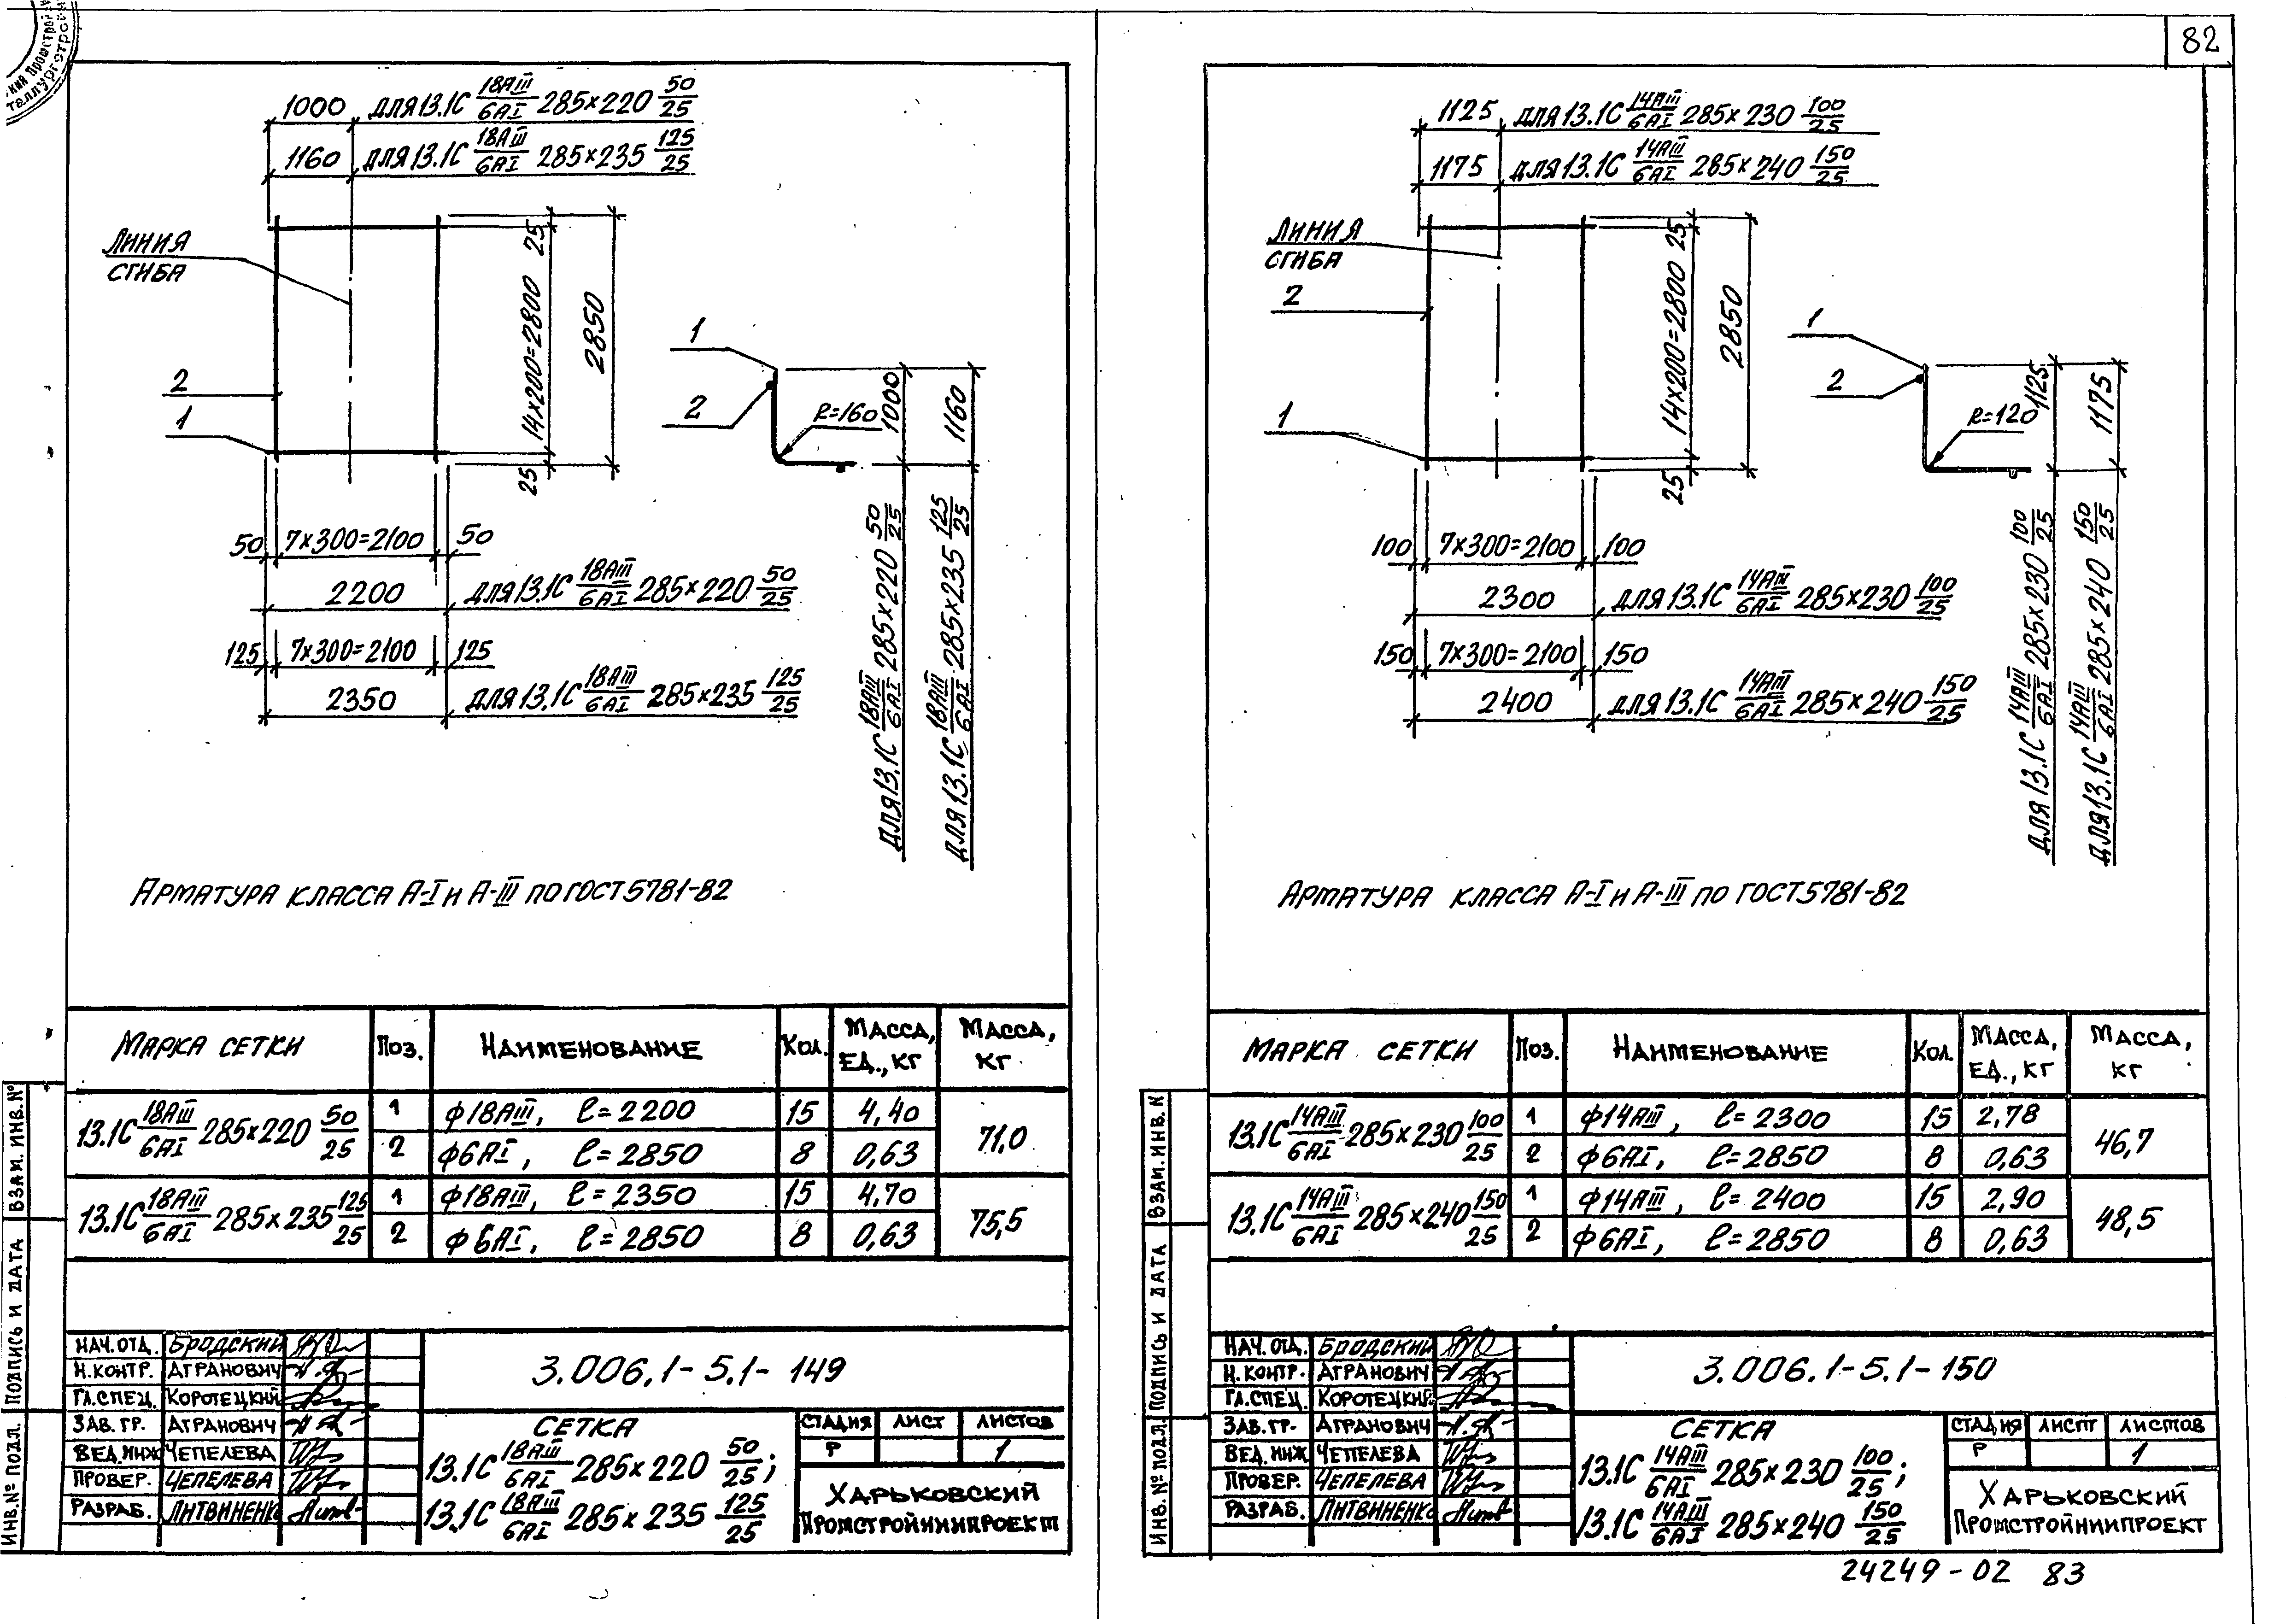 82
1000 ДЛЯ 13.1С 18АIII/6АI 285×220 50/25
1160 ДЛЯ 13.1С 18АIII/6АI 285×235 125/25
ЛИНИЯ
СГИБА
2
1
25
14×200=2800
25
2850
1
2
R=160
1000
1160
ДЛЯ 13.1С 18АIII/6АI 285×220 50/25
ДЛЯ 13.1С 18АIII/6АI 285×235 125/25
50 7×300=2100 50
2200 ДЛЯ 13.1С 18АIII/6АI 285×220 50/25
125 7×300=2100 125
2350 ДЛЯ 13.1С 18АIII/6АI 285×235 125/25
АРМАТУРА КЛАССА А-I И А-III ПО ГОСТ 5781-82
МАРКА СЕТКИ ПОЗ. НАИМЕНОВАНИЕ КОЛ. МАССА, ЕД., КГ МАССА, КГ
13.1С 18АIII/6АI 285×220 50/25 1 Ф18АIII, ℓ=2200 15 4,40 71,0
2 Ф6АI, ℓ=2850 8 0,63
13.1С 18АIII/6АI 285×235 125/25 1 Ф18АIII, ℓ=2350 15 4,70 75,5
2 Ф6АI, ℓ=2850 8 0,63
ИНВ.№ ПОДЛ. ПОДПИСЬ И ДАТА ВЗАМ. ИНВ. №
НАЧ. ОТД. БРОДСКИЙ
Н. КОНТР. АГРАНОВИЧ
ГЛ. СПЕЦ. КОРОТЕЦКИЙ
ЗАВ. ГР. АГРАНОВИЧ
ВЕД. ИНЖ ЧЕПЕЛЕВА
ПРОВЕР. ЧЕПЕЛЕВА
РАЗРАБ. ЛИТВИНЕНКО
3.006.1-5.1-149
СЕТКА
13.1С 18АIII/6АI 285×220 50/25;
13.1С 18АIII/6АI 285×235 125/25
СТАДИЯ ЛИСТ ЛИСТОВ
Р 1
ХАРЬКОВСКИЙ
ПРОМСТРОЙНИИПРОЕКТ
1125 ДЛЯ 13.1С 14АIII/6АI 285×230 100/25
1175 ДЛЯ 13.1С 14АIII/6АI 285×240 150/25
ЛИНИЯ
СГИБА
2
1
25
14×200=2800
25
2850
1
2
R=120
1125
1175
ДЛЯ 13.1С 14АIII/6АI 285×230 100/25
ДЛЯ 13.1С 14АIII/6АI 285×240 150/25
100 7×300=2100 100
2300 ДЛЯ 13.1С 14АIII/6АI 285×230 100/25
150 7×300=2100 150
2400 ДЛЯ 13.1С 14АIII/6АI 285×240 150/25
АРМАТУРА КЛАССА А-I И А-III ПО ГОСТ 5781-82
МАРКА СЕТКИ ПОЗ. НАИМЕНОВАНИЕ КОЛ. МАССА, ЕД., КГ МАССА, КГ
13.1С 14АIII/6АI 285×230 100/25 1 Ф14АIII, ℓ=2300 15 2,78 46,7
2 Ф6АI, ℓ=2850 8 0,63
13.1С 14АIII/6АI 285×240 150/25 1 Ф14АIII, ℓ=2400 15 2,90 48,5
2 Ф6АI, ℓ=2850 8 0,63
ИНВ.№ ПОДЛ. ПОДПИСЬ И ДАТА ВЗАМ. ИНВ. №
НАЧ. ОТД. БРОДСКИЙ
Н. КОНТР. АГРАНОВИЧ
ГЛ. СПЕЦ. КОРОТЕЦКИЙ
ЗАВ. ГР. АГРАНОВИЧ
ВЕД. ИНЖ ЧЕПЕЛЕВА
ПРОВЕР. ЧЕПЕЛЕВА
РАЗРАБ. ЛИТВИНЕНКО
3.006.1-5.1-150
СЕТКА
13.1С 14АIII/6АI 285×230 100/25;
13.1С 14АIII/6АI 285×240 150/25
СТАДИЯ ЛИСТ ЛИСТОВ
Р 1
ХАРЬКОВСКИЙ
ПРОМСТРОЙНИИПРОЕКТ
24249-02 83